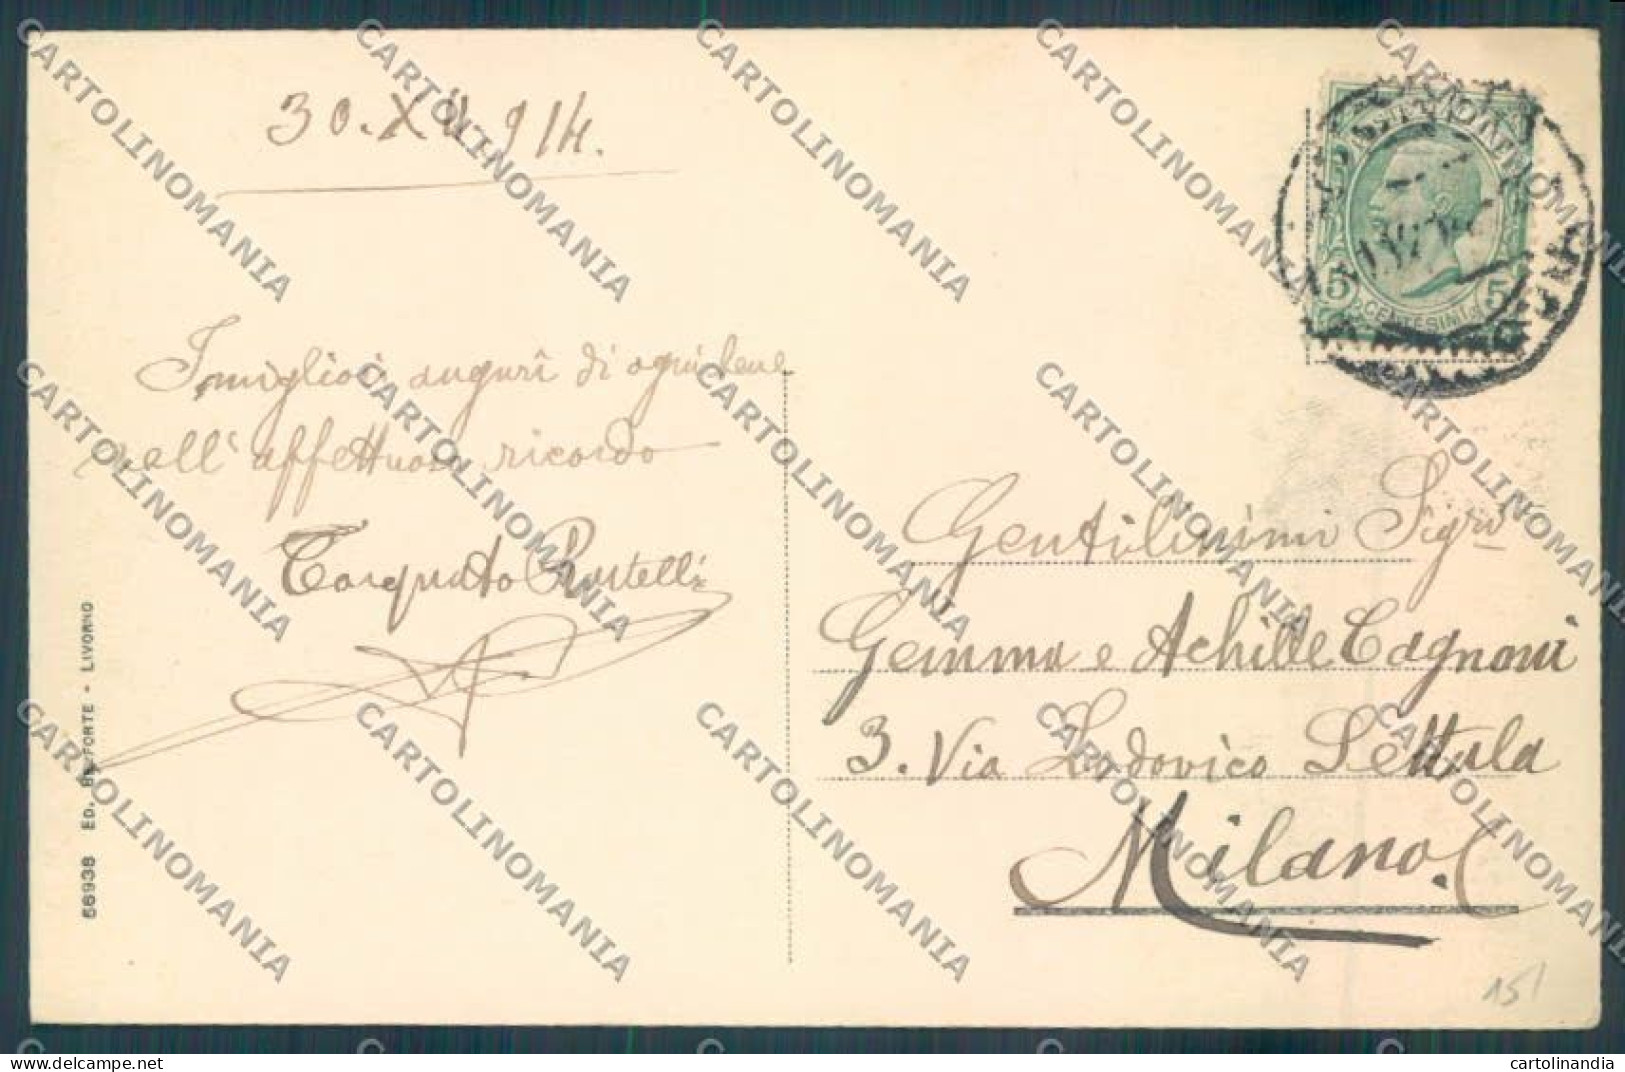 30.XII.914.
I migliori auguri di ogni bene
nell'affettuoso ricordo
Torquato Rastelli
56938 ED. BELFORTE - LIVORNO
5 CENTESINI 5
Gentilissimi Sigri
Gemma e Achille Cagnoni
3. Via Lodovico Settala
Milano.
15/
CARTOLINOMANIA
www.delcampe.net
cartolinandia